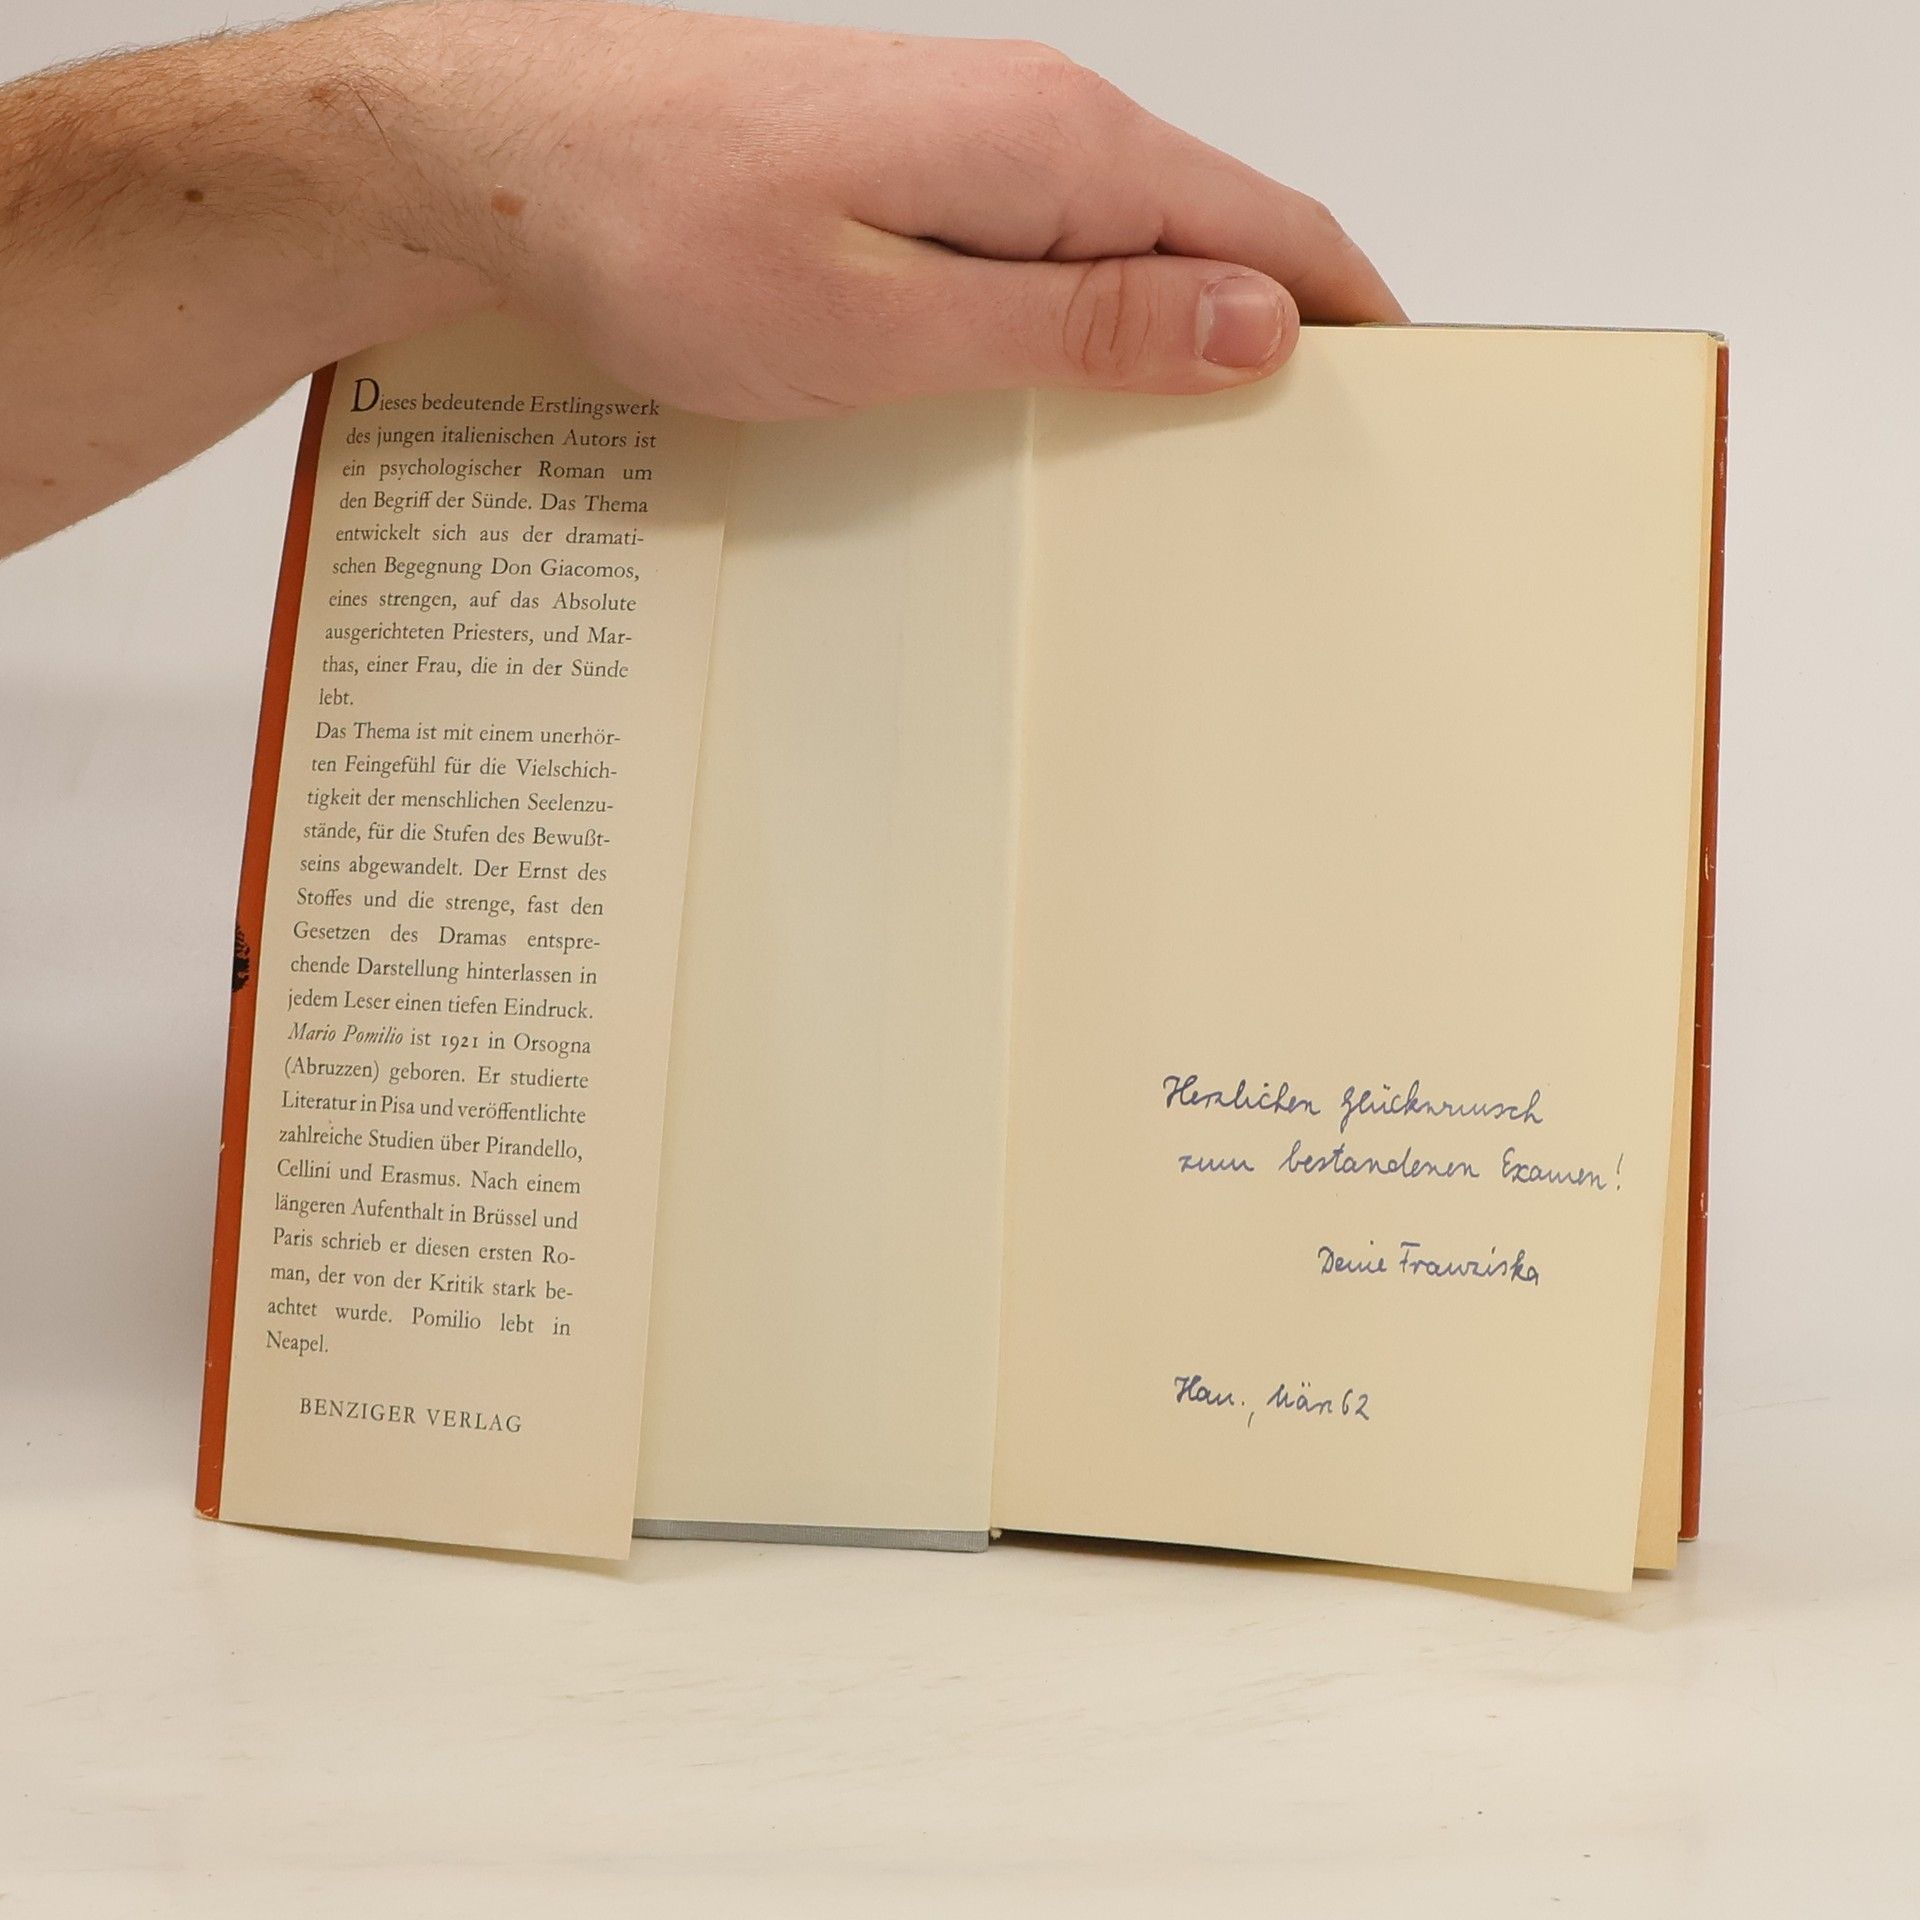 Dieses bedeutende Erstlingswerk
des jungen italienischen Autors ist
ein psychologischer Roman um
den Begriff der Sünde. Das Thema
entwickelt sich aus der dramati-
schen Begegnung Don Giacomos,
eines strengen, auf das Absolute
ausgerichteten Priesters, und Mar-
thas, einer Frau, die in der Sünde
lebt.
Das Thema ist mit einem unerhör-
ten Feingefühl für die Vielschich-
tigkeit der menschlichen Seelenzu-
stände, für die Stufen des Bewußt-
seins abgewandelt. Der Ernst des
Stoffes und die strenge, fast den
Gesetzen des Dramas entspre-
chende Darstellung hinterlassen in
jedem Leser einen tiefen Eindruck.
Mario Pomilio ist 1921 in Orsogna
(Abruzzen) geboren. Er studierte
Literatur in Pisa und veröffentlichte
zahlreiche Studien über Pirandello,
Cellini und Erasmus. Nach einem
längeren Aufenthalt in Brüssel und
Paris schrieb er diesen ersten Ro-
man, der von der Kritik stark be-
achtet wurde. Pomilio lebt in
Neapel.
BENZIGER VERLAG
Herzlichen Glückwunsch
zum bestandenen Examen!
Deine Franziska
Han., März 62